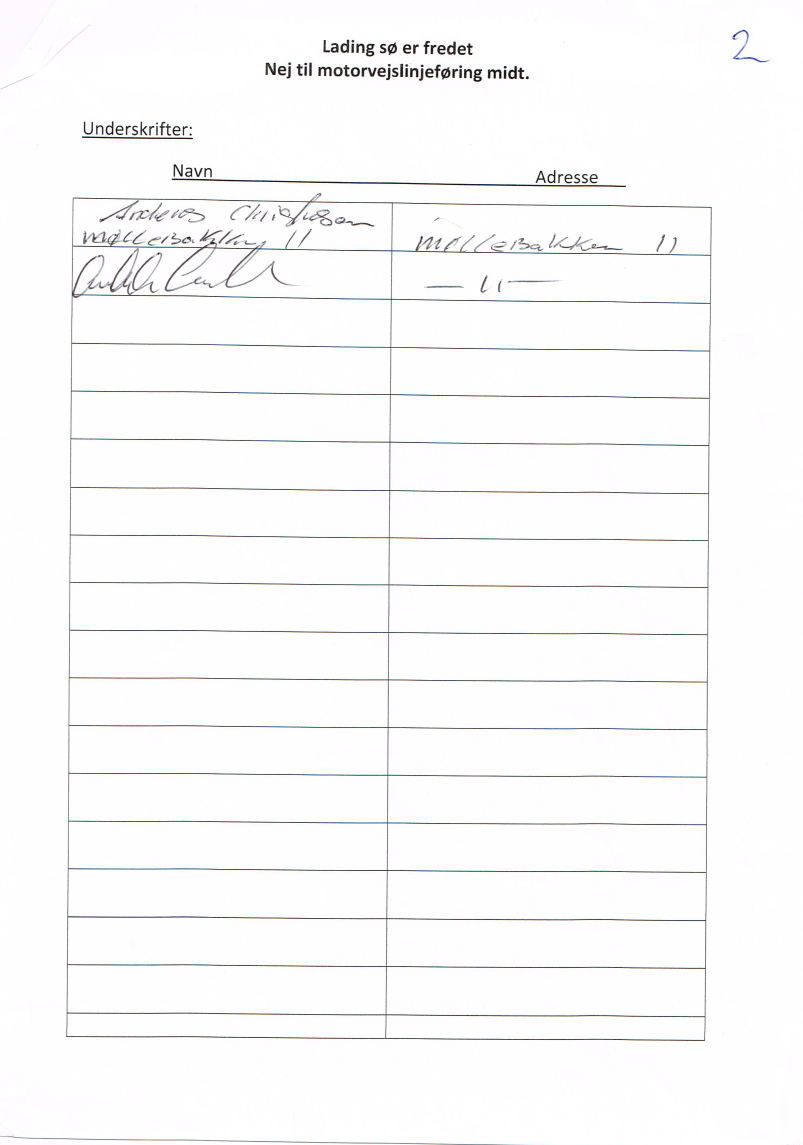 2
Lading sø er fredet
Nej til motorvejslinjeføring midt.
Underskrifter:
Navn Adresse
Anders
Møllebakken 11 Møllebakken 11
— 11 —